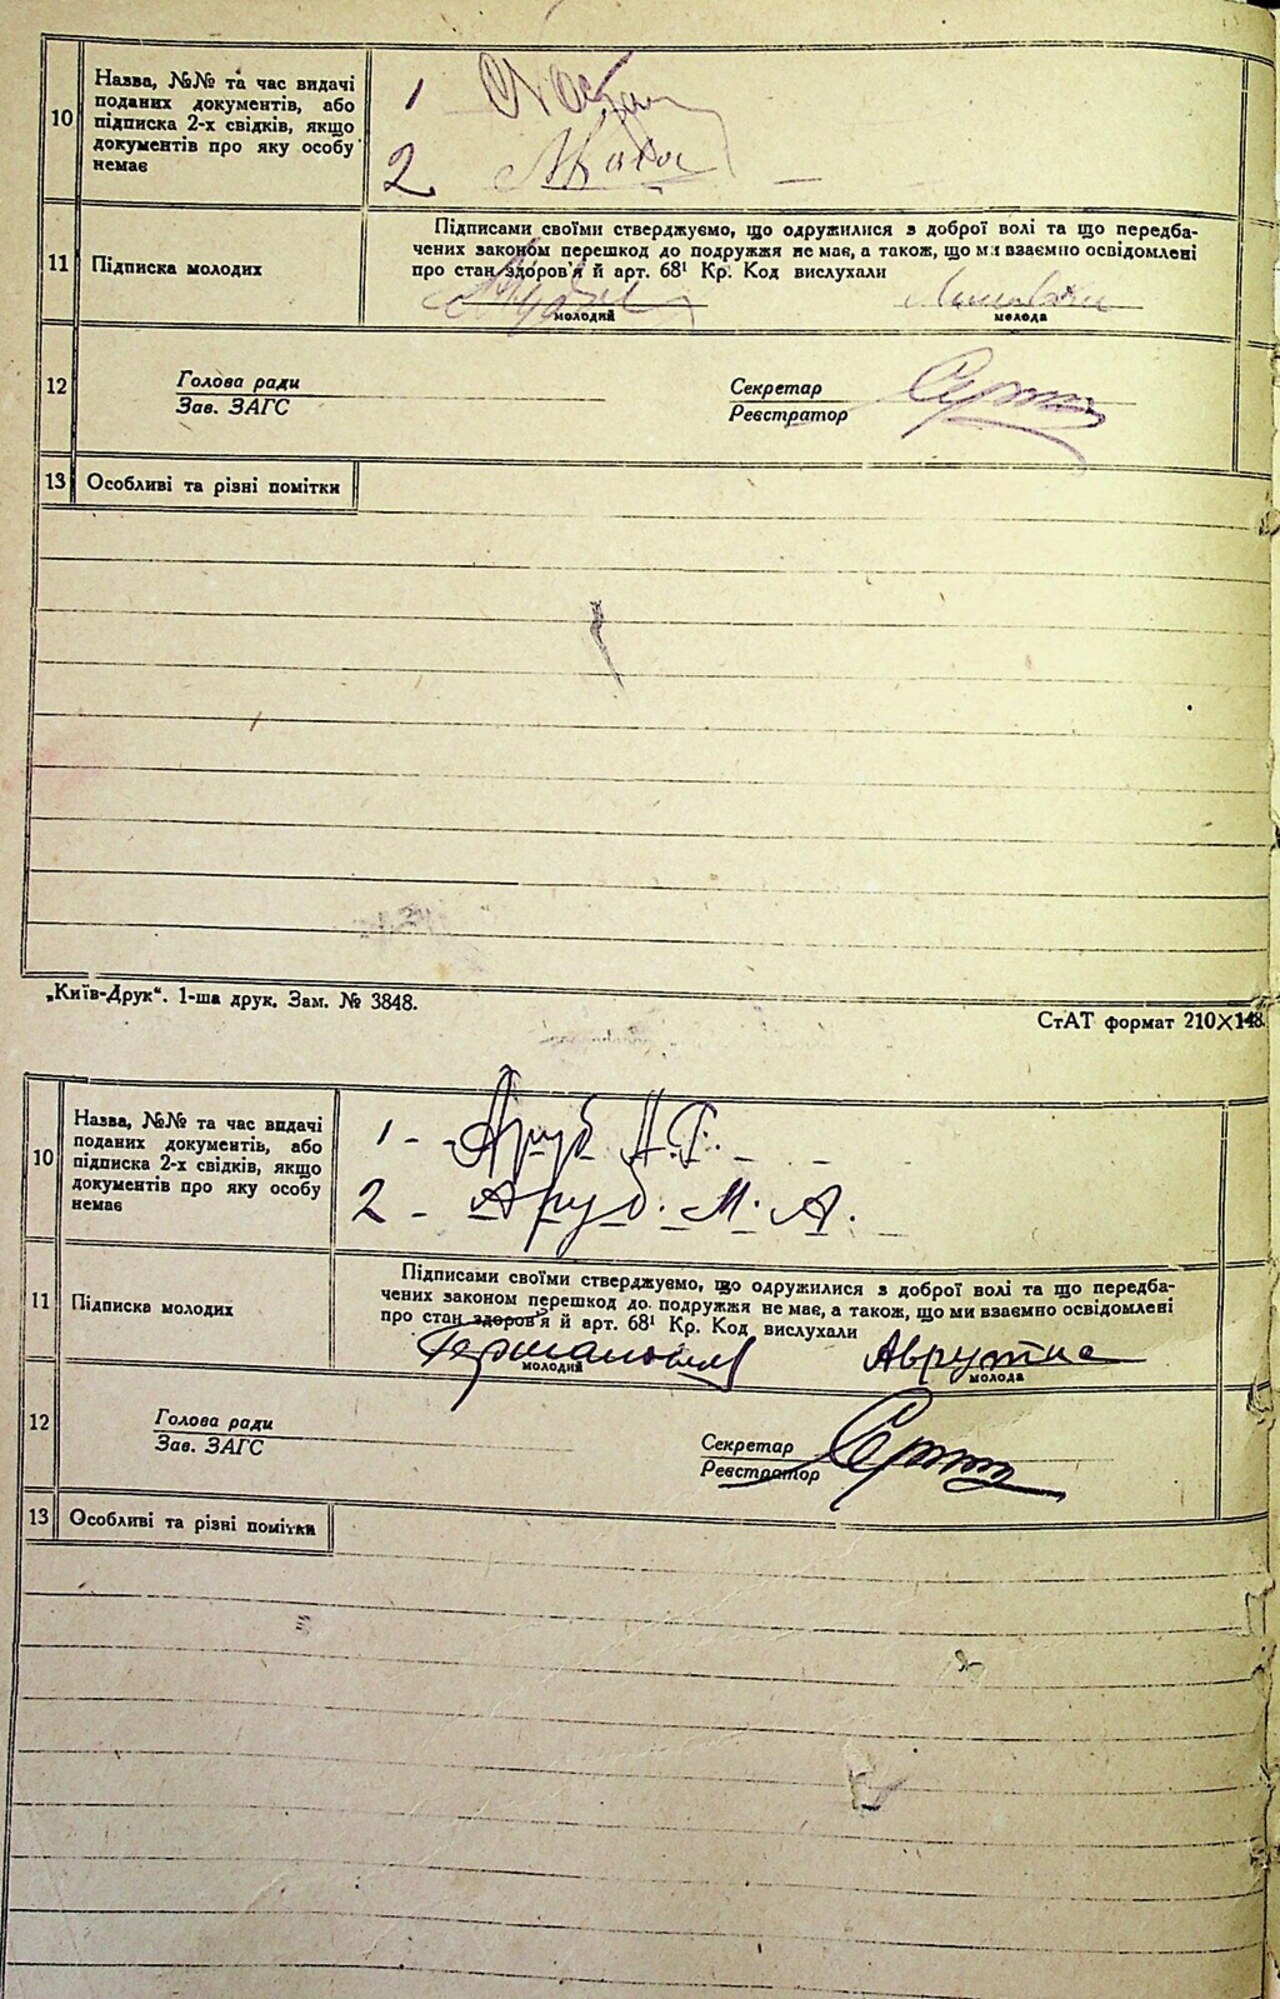 10
Назва, №№ та час видачі
поданих документів, або
підписка 2-х свідків, якщо
документів про яку особу
немає
1
2
11
Підписка молодих
Підписами своїми стверджуємо, що одружилися з доброї волі та що передба-
чених законом перешкод до подружжя не має, а також, що ми взаємно освідомлені
про стан здоров'я й арт. 68¹ Кр. Код вислухали
молодий
молода
12
Голова ради
Зав. ЗАГС
Секретар
Реєстратор
13
Особливі та різні помітки
„Київ-Друк“. 1-ша друк. Зам. № 3848.
СтАТ формат 210×148.
10
Назва, №№ та час видачі
поданих документів, або
підписка 2-х свідків, якщо
документів про яку особу
немає
1 - Аруб А.Г.
2 - Аруб. М. А.
11
Підписка молодих
Підписами своїми стверджуємо, що одружилися з доброї волі та що передба-
чених законом перешкод до подружжя не має, а також, що ми взаємно освідомлені
про стан здоров'я й арт. 68¹ Кр. Код вислухали
молодий
молода
12
Голова ради
Зав. ЗАГС
Секретар
Реєстратор
13
Особливі та різні помітки